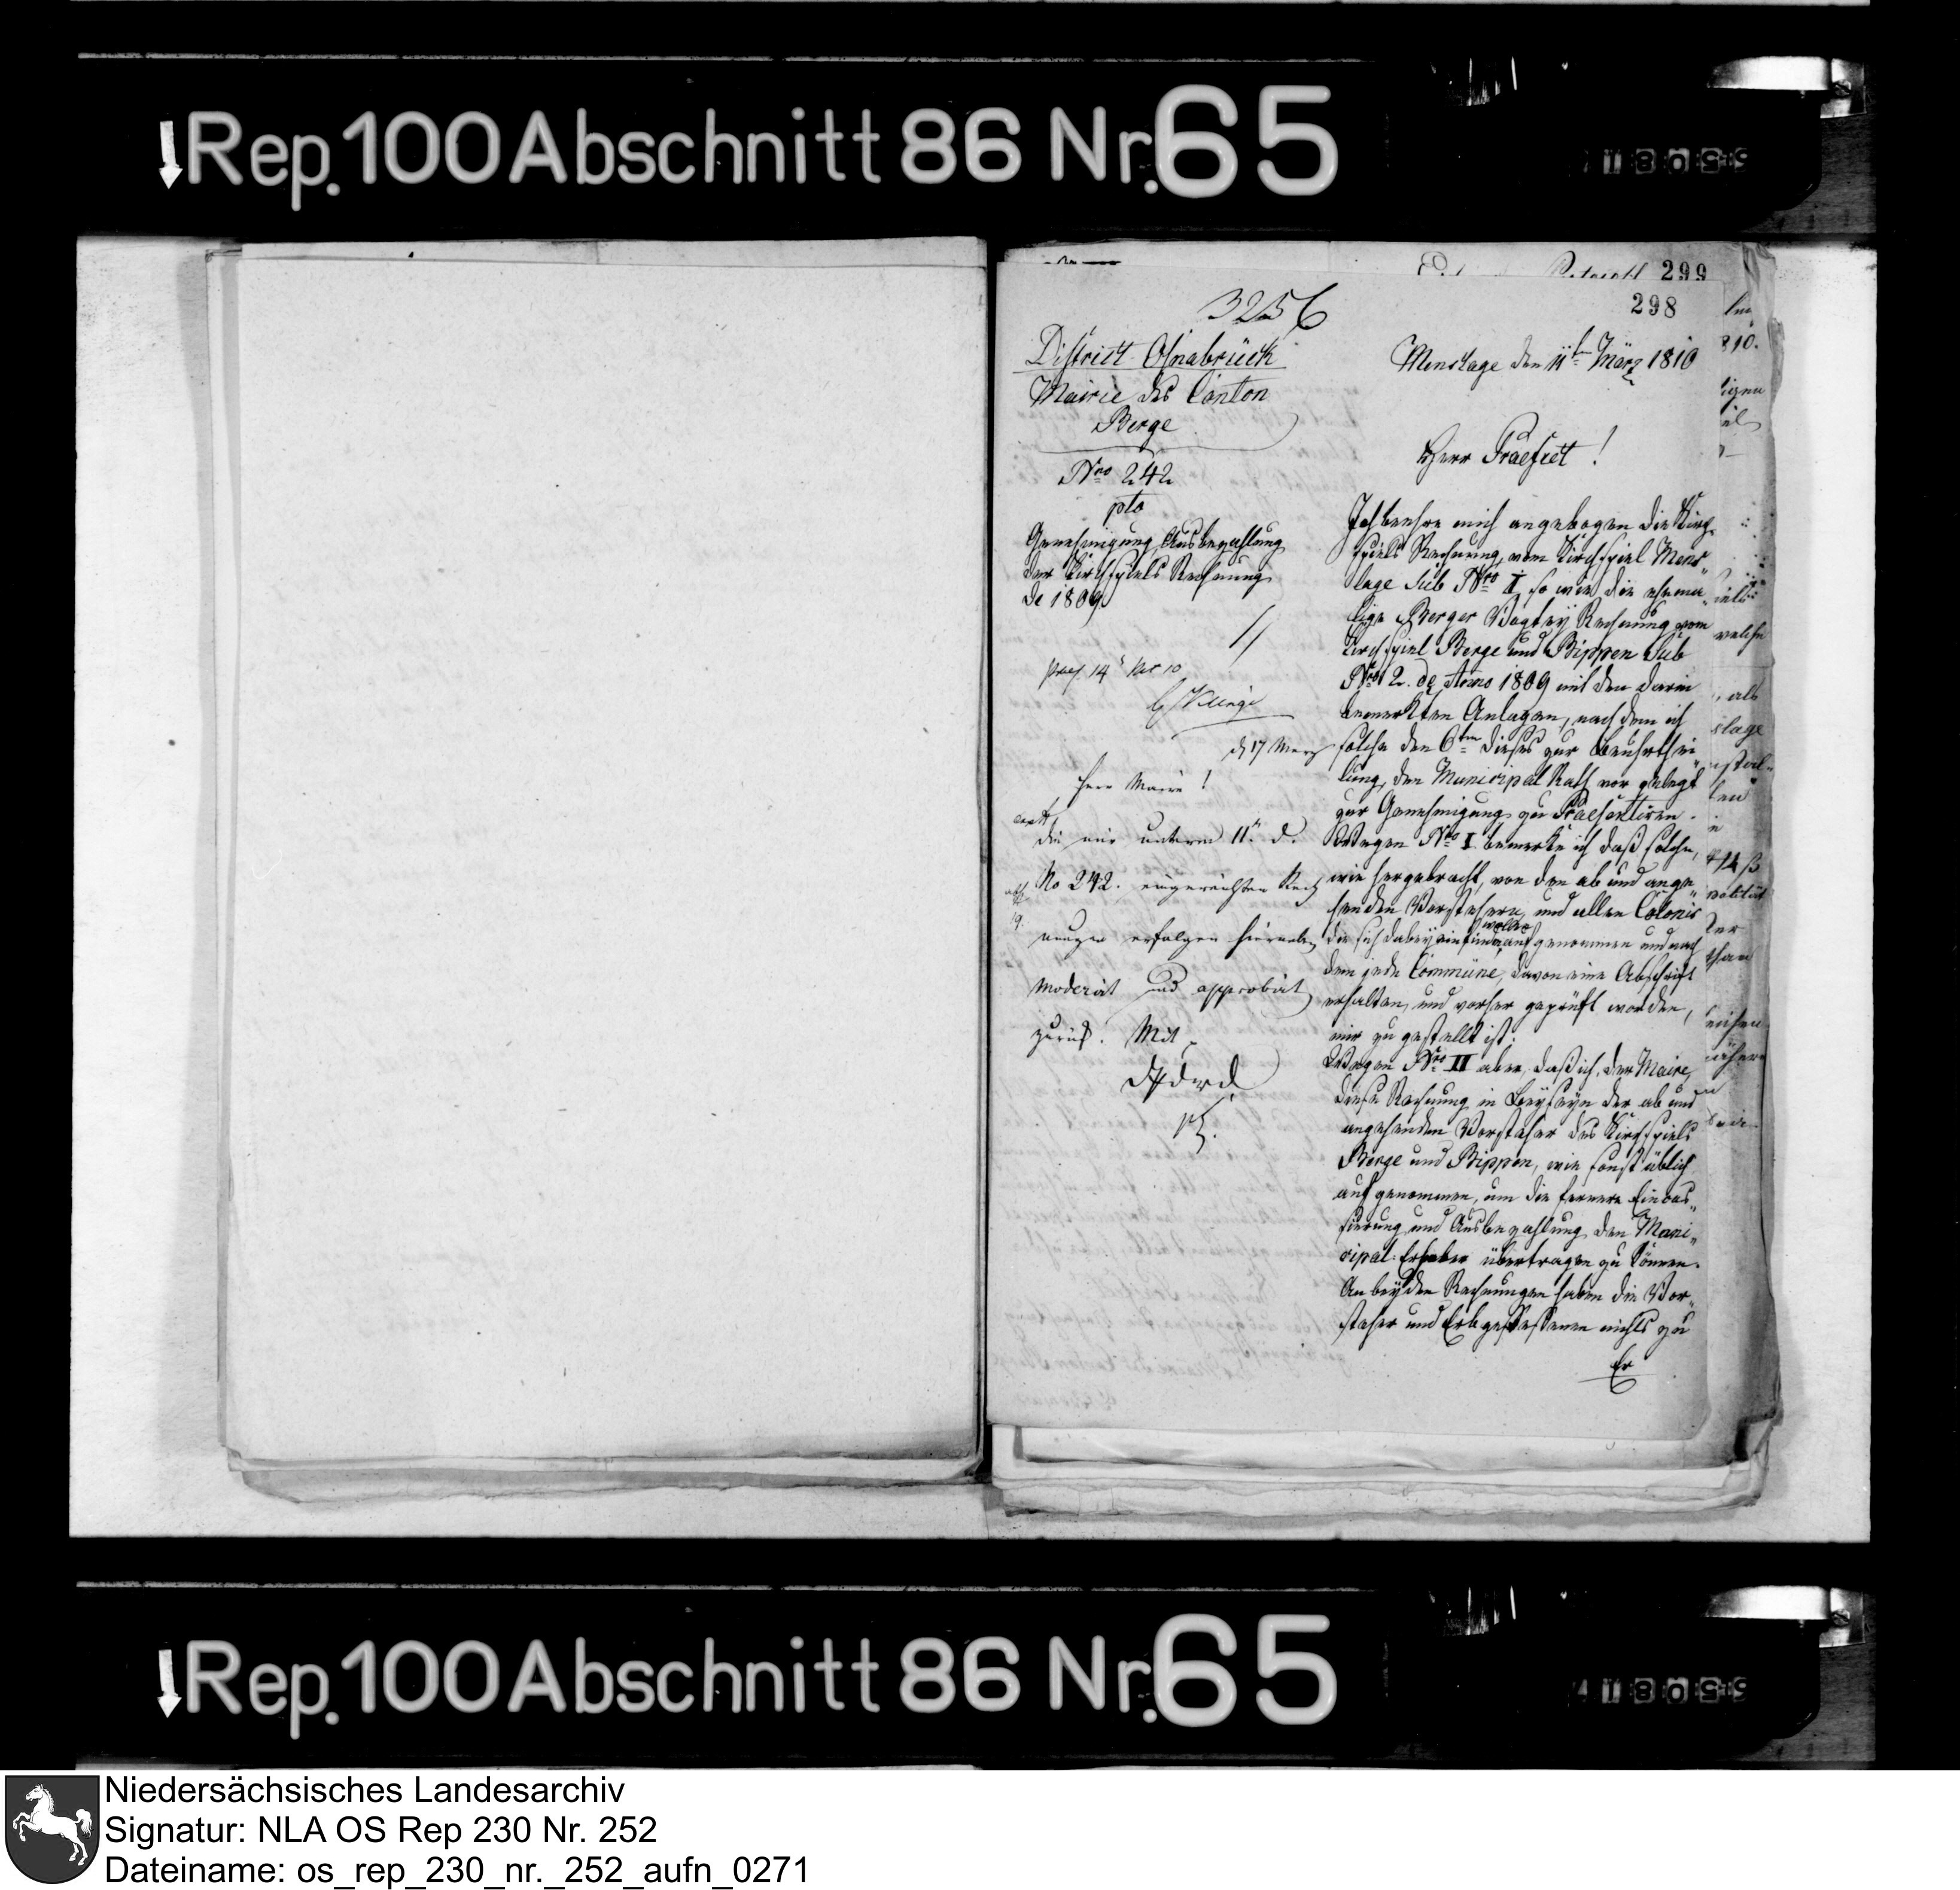 Rep. 100 Abschnitt 86 Nr. 65
299
298
3256
District Osnabrück
Mairie des Canton
Berge
Nro 242
pto
Genehmigung, Ausbezahlung
der Kirchspiels Rechnung
de 1809
praes. 14
d 17 Merz
Herr Maire!
die mir unterm 11ten d.
No 242. eingereichten Rech
nungen erfolgen hierneben
moderirt und approbirt
zurück. Mit
Menslage den 11t März 1810
Herr Praefect!
Ich beehre mich angebogen die Kirch
spiels Rechnung vom Kirchspiel Mens„
lage Sub Nro I, so wie die ehema„
lige Berger Vogtey Rechnung vom
Kirchspiel Berge und Bippen Sub
Nro 2. de Anno 1809 mit den darin
bemerkten Anlagen, nach dem ich
solche den 6ten dieses zur Beurthei„
lung, den Municipal Rath vor gelegt
zur Genehmigung zu Praesentiren.
Wegen Nro I. bemerke ich daß solche,
wie hergebracht, von den ab und ange„
henden Vorstehern, und allen Colonis
die sich dabey einfinden wollen, auf genommen und nach
dem jede Commüne, davon eine Abschrift
erhalten, und vorher geprüft worden,
mir zu gestellt ist.
Wegen Nro II aber, daß ich, der Maire,
diese Rechnung in Beyseyn der ab und
angehenden Vorsteher des Kirchspiels
Berge und Bippen, wie sonst üblich
auf genommen, um die fernere Einkas„
sierung und Ausbezahlung den Muni„
cipal-Erheber übertragen zu können.
An beyden Rechnungen haben die Vor„
steher und Erbgesessenen nichts zu
Er
Rep. 100 Abschnitt 86 Nr. 65
Niedersächsisches Landesarchiv
Signatur: NLA OS Rep 230 Nr. 252
Dateiname: os_rep_230_nr._252_aufn_0271